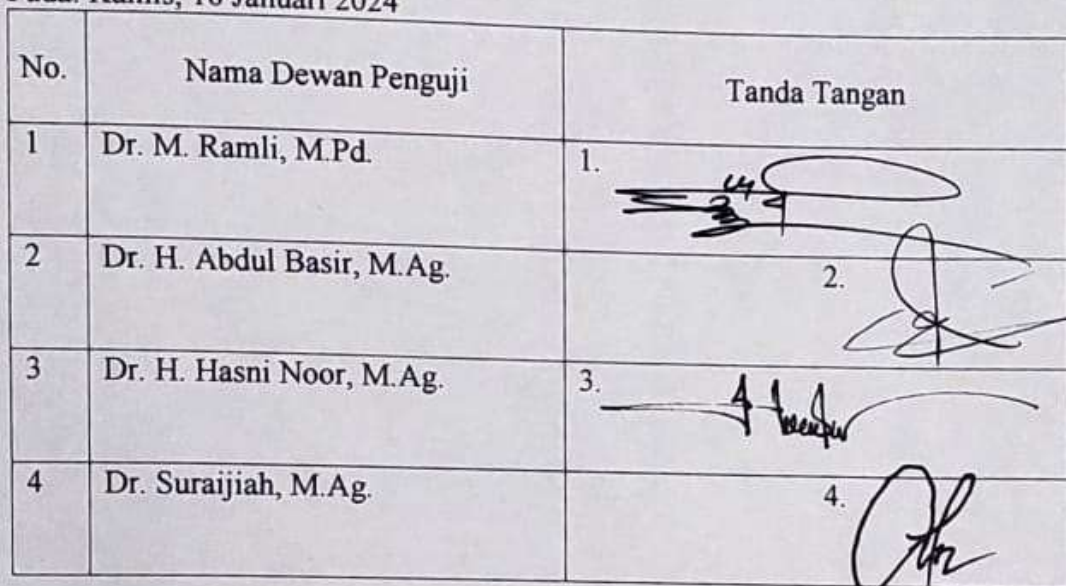 Januari 2024
No. Nama Dewan Penguji Tanda Tangan
1 Dr. M. Ramli, M.Pd. 1.
2 Dr. H. Abdul Basir, M.Ag. 2.
3 Dr. H. Hasni Noor, M.Ag. 3.
4 Dr. Suraijiah, M.Ag. 4.